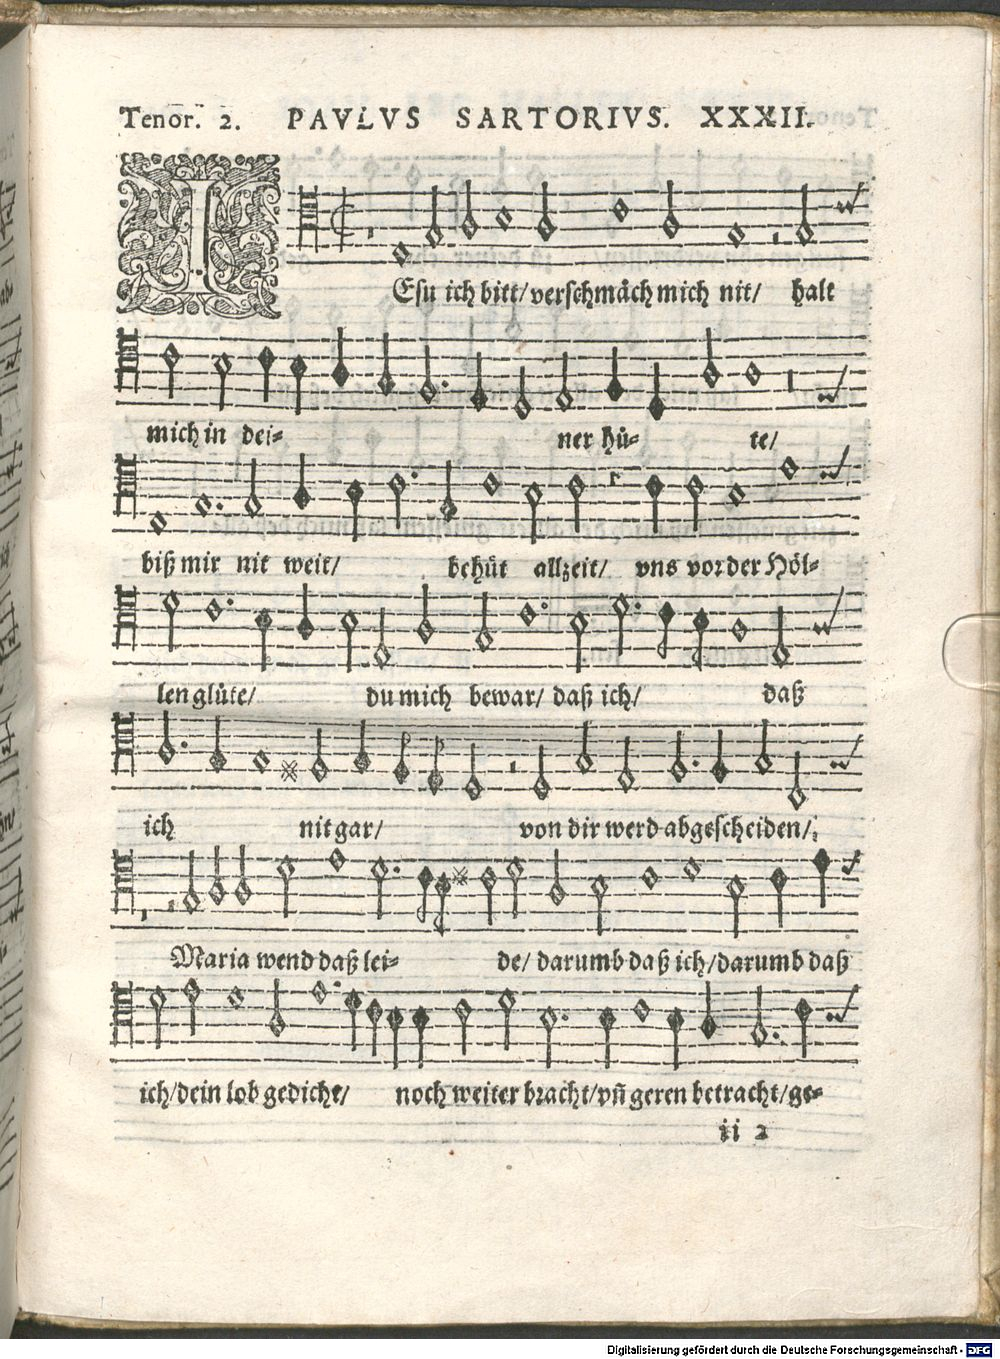 Tenor. 2. PAVLVS SARTORIVS. XXXII.
IEsu ich bitt/verschmåch mich nit/ halt
mich in dei⸗ ner hü⸗ te/
biß mir nit weit/ behüt allzeit/ vns vor der Höl⸗
len glüte/ du mich bewar/ daß ich/ daß
ich nit gar/ von dir werd abgescheiden/
Maria wend daß lei⸗ de/ darumb daß ich/darumb daß
ich/dein lob gedicht/ noch weiter bracht/vñ geren betracht/ge⸗
ii 2
Digitalisierung gefördert durch die Deutsche Forschungsgemeinschaft - DFG